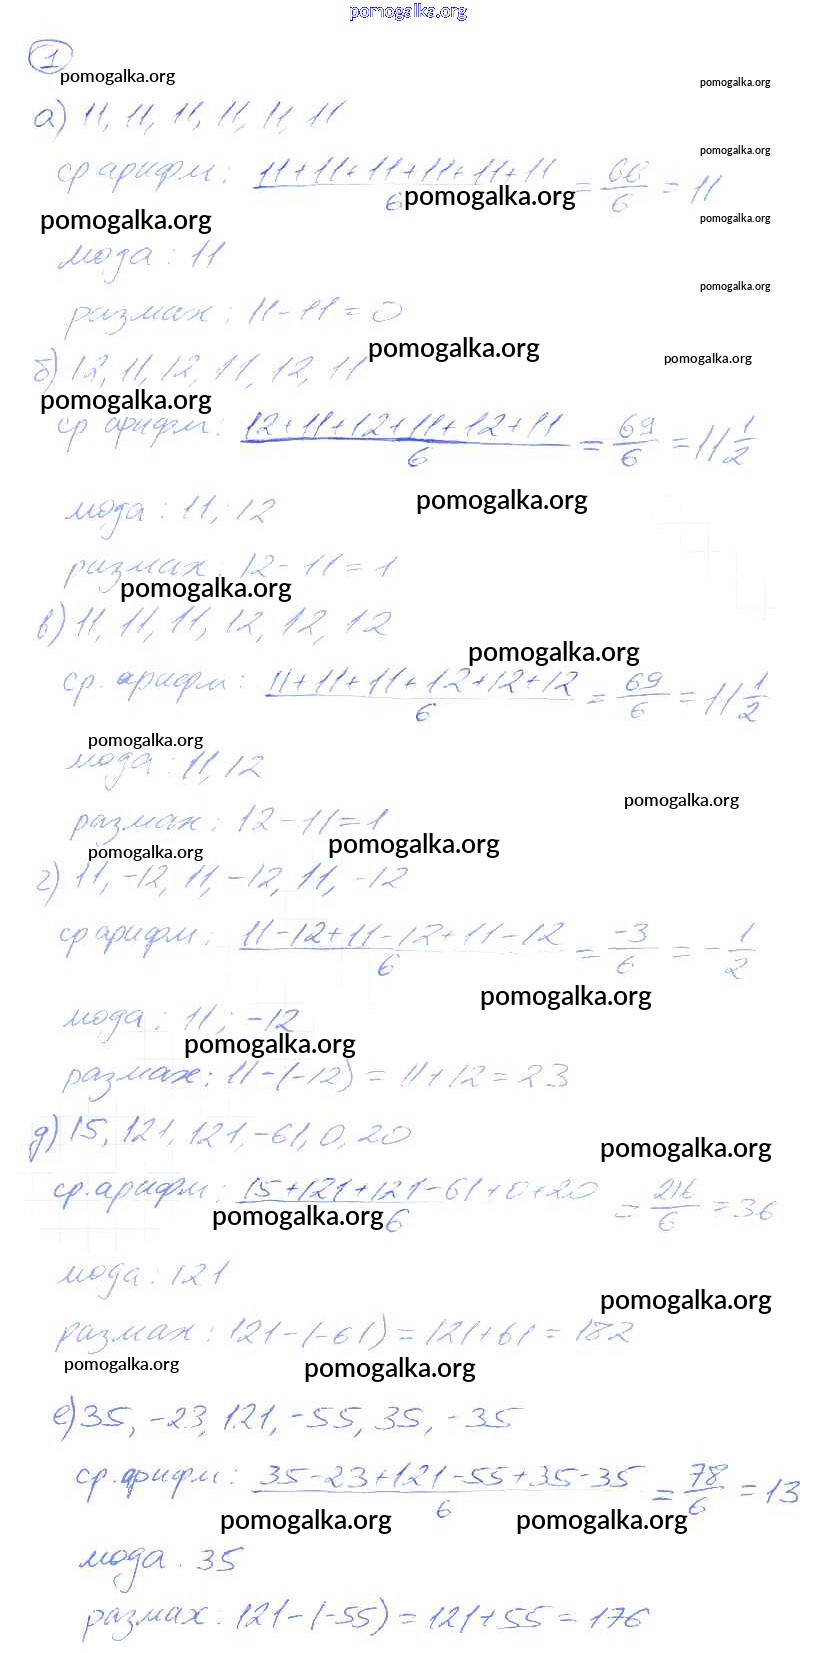 pomogalka.org
1
pomogalka.org
pomogalka.org
а) 11, 11, 11, 11, 11, 11
pomogalka.org
ср арифм: (11+11+11+11+11+11)/6 = 66/6 = 11
pomogalka.org
pomogalka.org
pomogalka.org
мода: 11
pomogalka.org
размах: 11-11=0
pomogalka.org
pomogalka.org
б) 12, 11, 12, 11, 12, 11
pomogalka.org
ср арифм: (12+11+12+11+12+11)/6 = 69/6 = 11 1/2
pomogalka.org
мода: 11; 12
размах: 12-11=1
pomogalka.org
в) 11, 11, 11, 12, 12, 12
pomogalka.org
ср. арифм: (11+11+11+12+12+12)/6 = 69/6 = 11 1/2
pomogalka.org
мода: 11, 12
pomogalka.org
размах: 12-11=1
pomogalka.org
pomogalka.org
г) 11, -12, 11, -12, 11, -12
ср арифм: (11-12+11-12+11-12)/6 = -3/6 = -1/2
pomogalka.org
мода: 11; -12
pomogalka.org
размах: 11-(-12) = 11+12 = 23
д) 15, 121, 121, -61, 0, 20
pomogalka.org
ср. арифм: (15+121+121-61+0+20)/6 = 216/6 = 36
pomogalka.org
мода: 121
pomogalka.org
размах: 121-(-61) = 121+61 = 182
pomogalka.org
pomogalka.org
е) 35, -23, 121, -55, 35, -35
ср. арифм: (35-23+121-55+35-35)/6 = 78/6 = 13
pomogalka.org
pomogalka.org
мода. 35
размах: 121-(-55) = 121+55 = 176